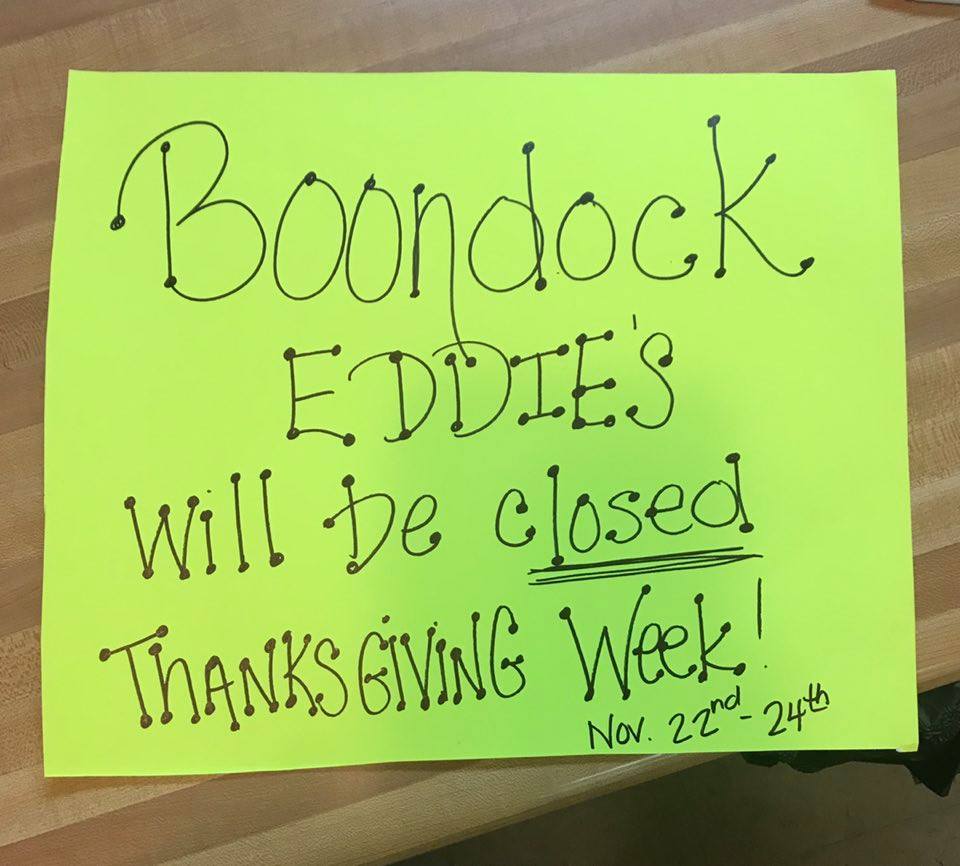 Boondock
EDDIE'S
Will be closed
THANKSGIVING Week!
Nov. 22nd - 24th